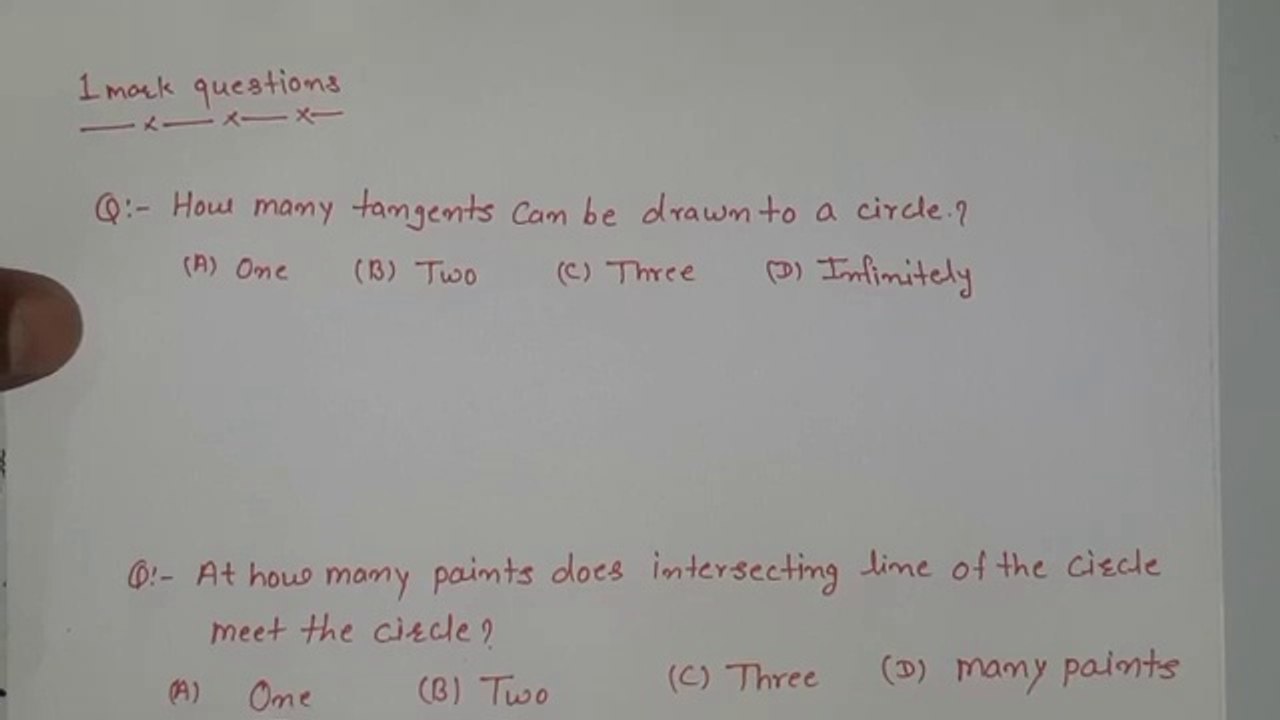 1 mark questions
Q:- How many tangents can be drawn to a circle.?
(A) One (B) Two (C) Three (D) Infinitely
Q:- At how many paints does intersecting line of the circle
meet the circle?
(A) One (B) Two (C) Three (D) many paints